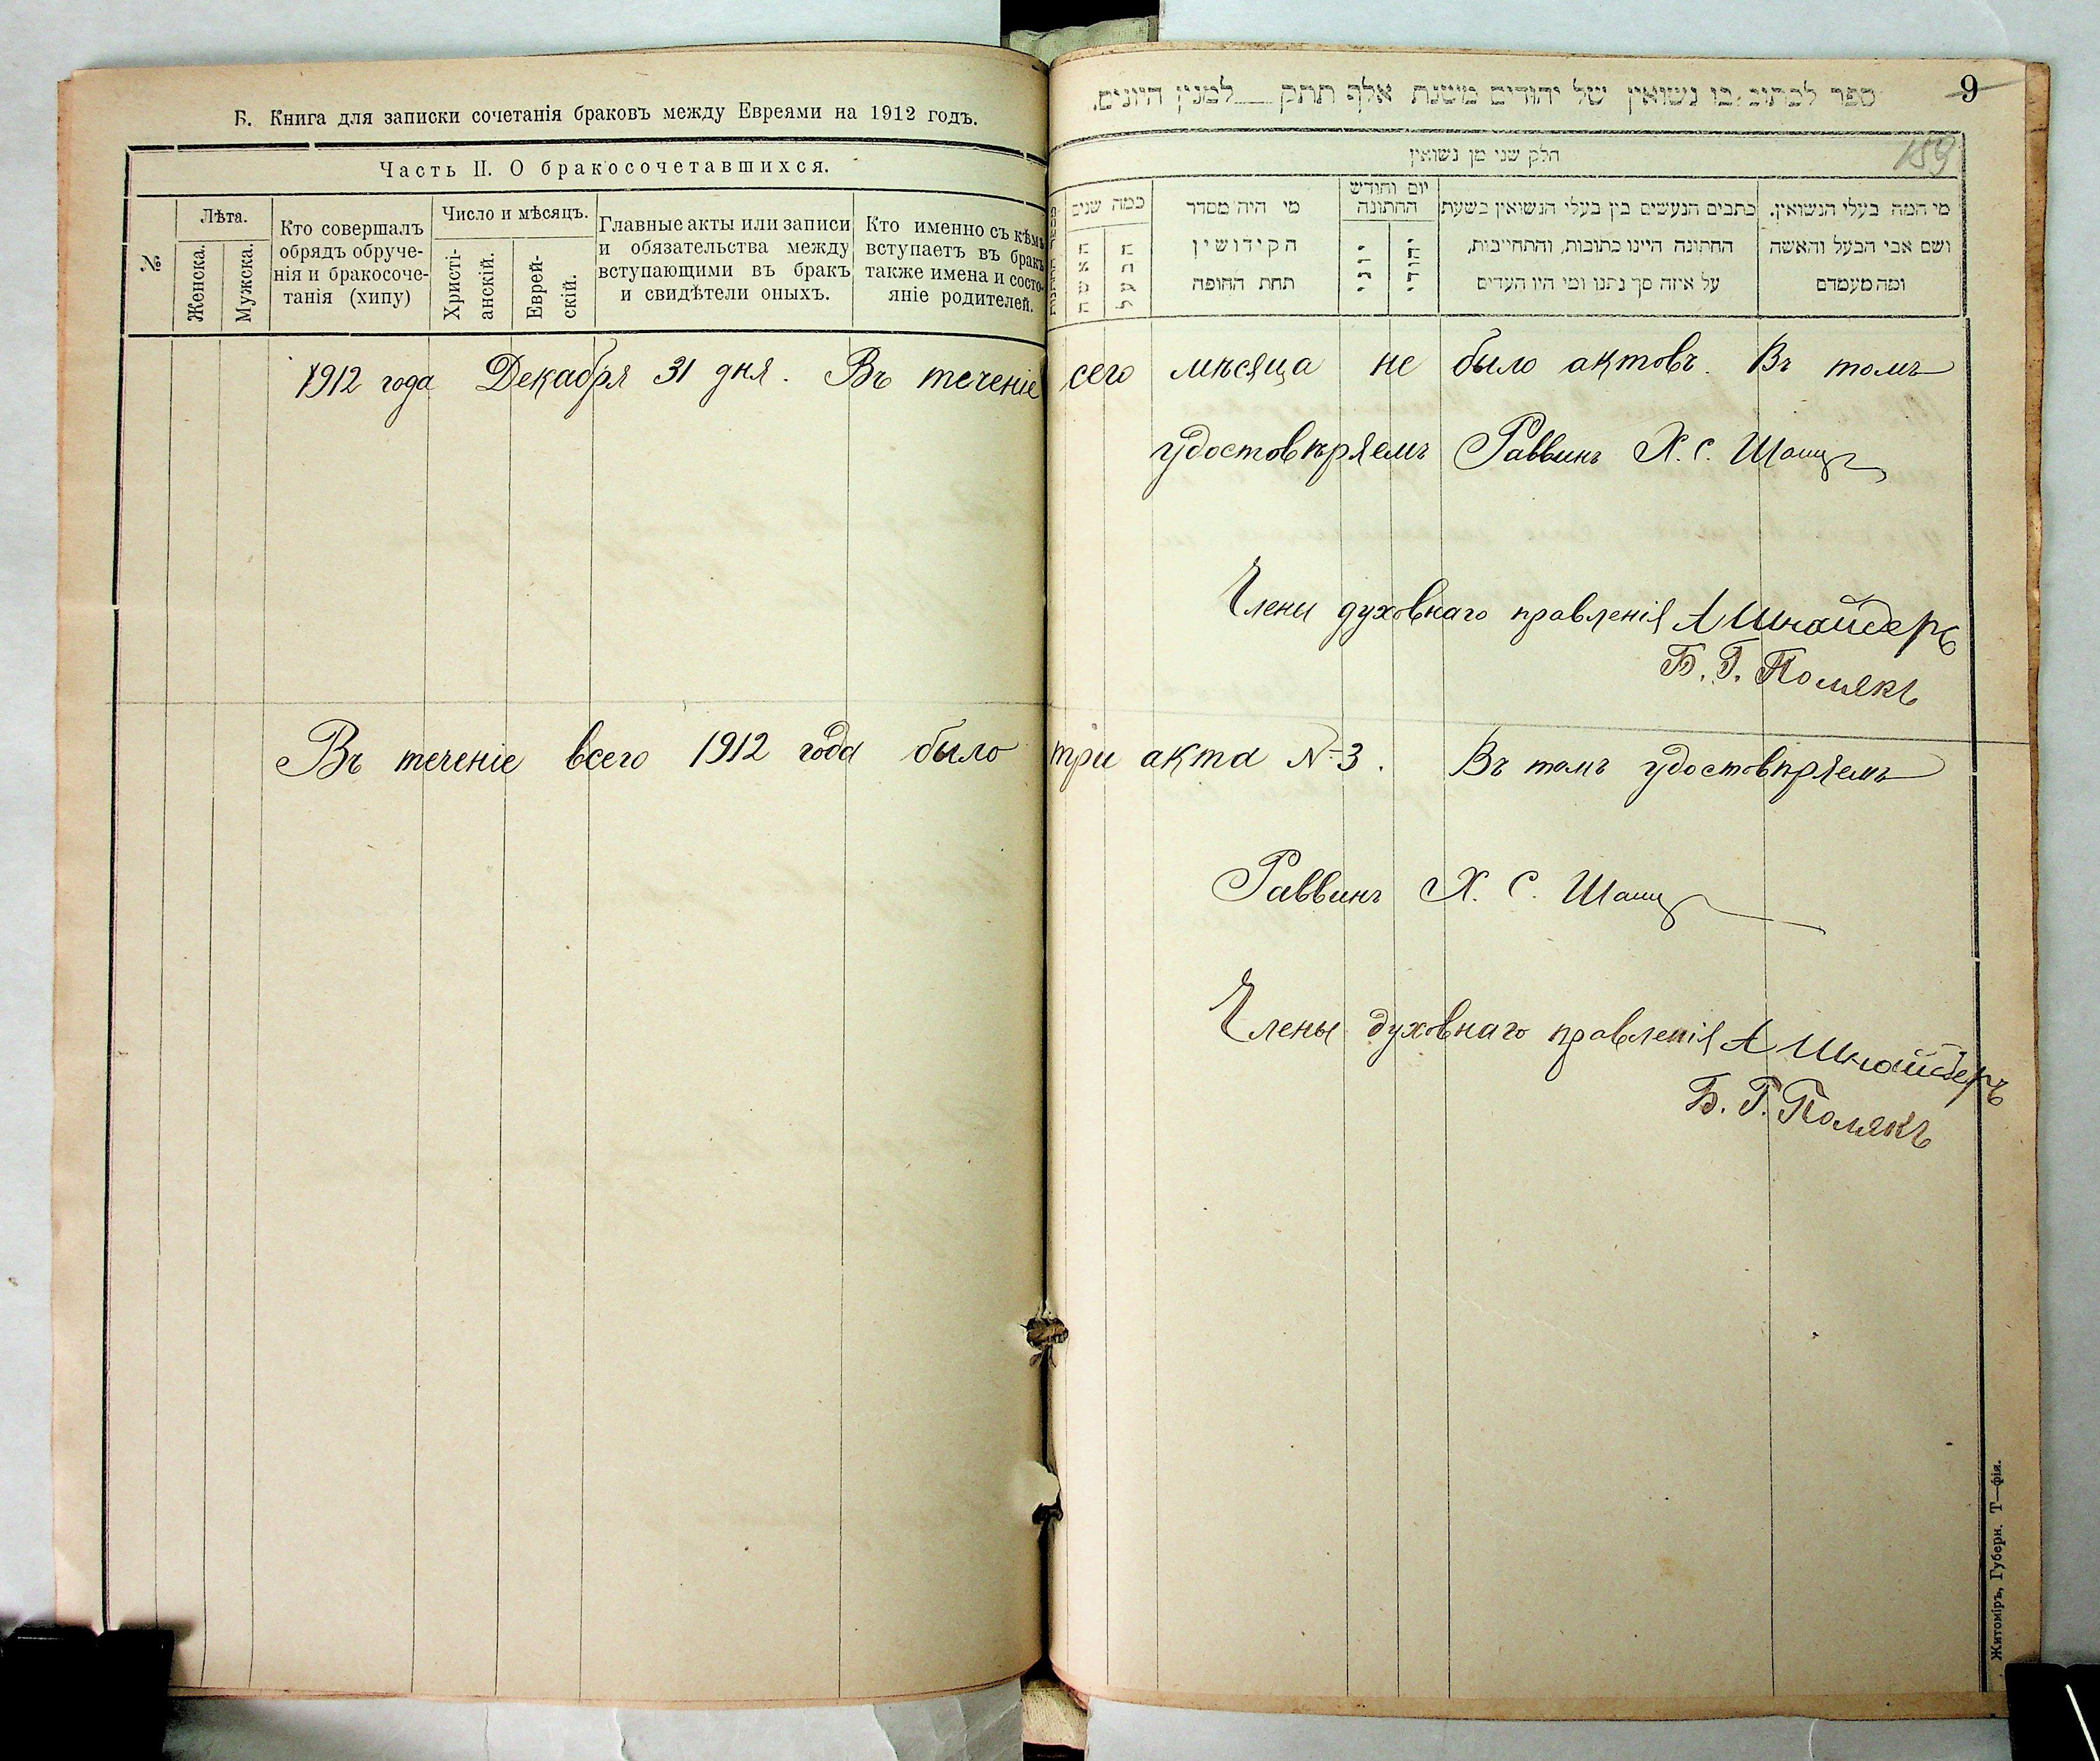 Б. Книга для записки сочетанія браковъ между Евреями на 1912 годъ.
Часть II. О бракосочетавшихся.
№
Лѣта.
Женска.
Мужска.
Кто совершалъ
обрядъ обруче-
нія и бракосоче-
танія (хипу)
Число и мѣсяцъ.
Христі-
анскій.
Еврей-
скій.
Главные акты или записи
и обязательства между
вступающими въ бракъ
и свидѣтели оныхъ.
Кто именно съ кѣмъ
вступаетъ въ бракъ
также имена и состо-
яніе родителей.
ספר לכתוב בו נשואין של יהודים משנת אלף תתק___למנין היונים.
9
159
חלק שני מן נשואין
כמה שנים
האשה
הבעל
מי היה מסדר
הקידושין
תחת החופה
יום וחודש
החתונה
יוני
יהודי
כתבים הנעשים בין בעלי הנשואין בשעת
החתונה היינו כתובות, והתחייבות,
על איזה סך נתנו ומי היו העדים
מי המה בעלי הנשואין.
ושם אבי הבעל והאשה
ומה מעמדם
1912 года Декабря 31 дня. Въ теченіе сего мѣсяца не было актовъ. Въ томъ
удостовѣряемъ Раввинъ Х. С.
Члены духовнаго правленія А Шнайдеръ
Б. Г. Полякъ
Въ теченіе всего 1912 года было три акта №3. Въ томъ удостовѣряемъ
Раввинъ Х. С.
Члены духовнаго правленія А Шнайдеръ
Б. Г. Полякъ
Житоміръ, Губерн. Т—фія.